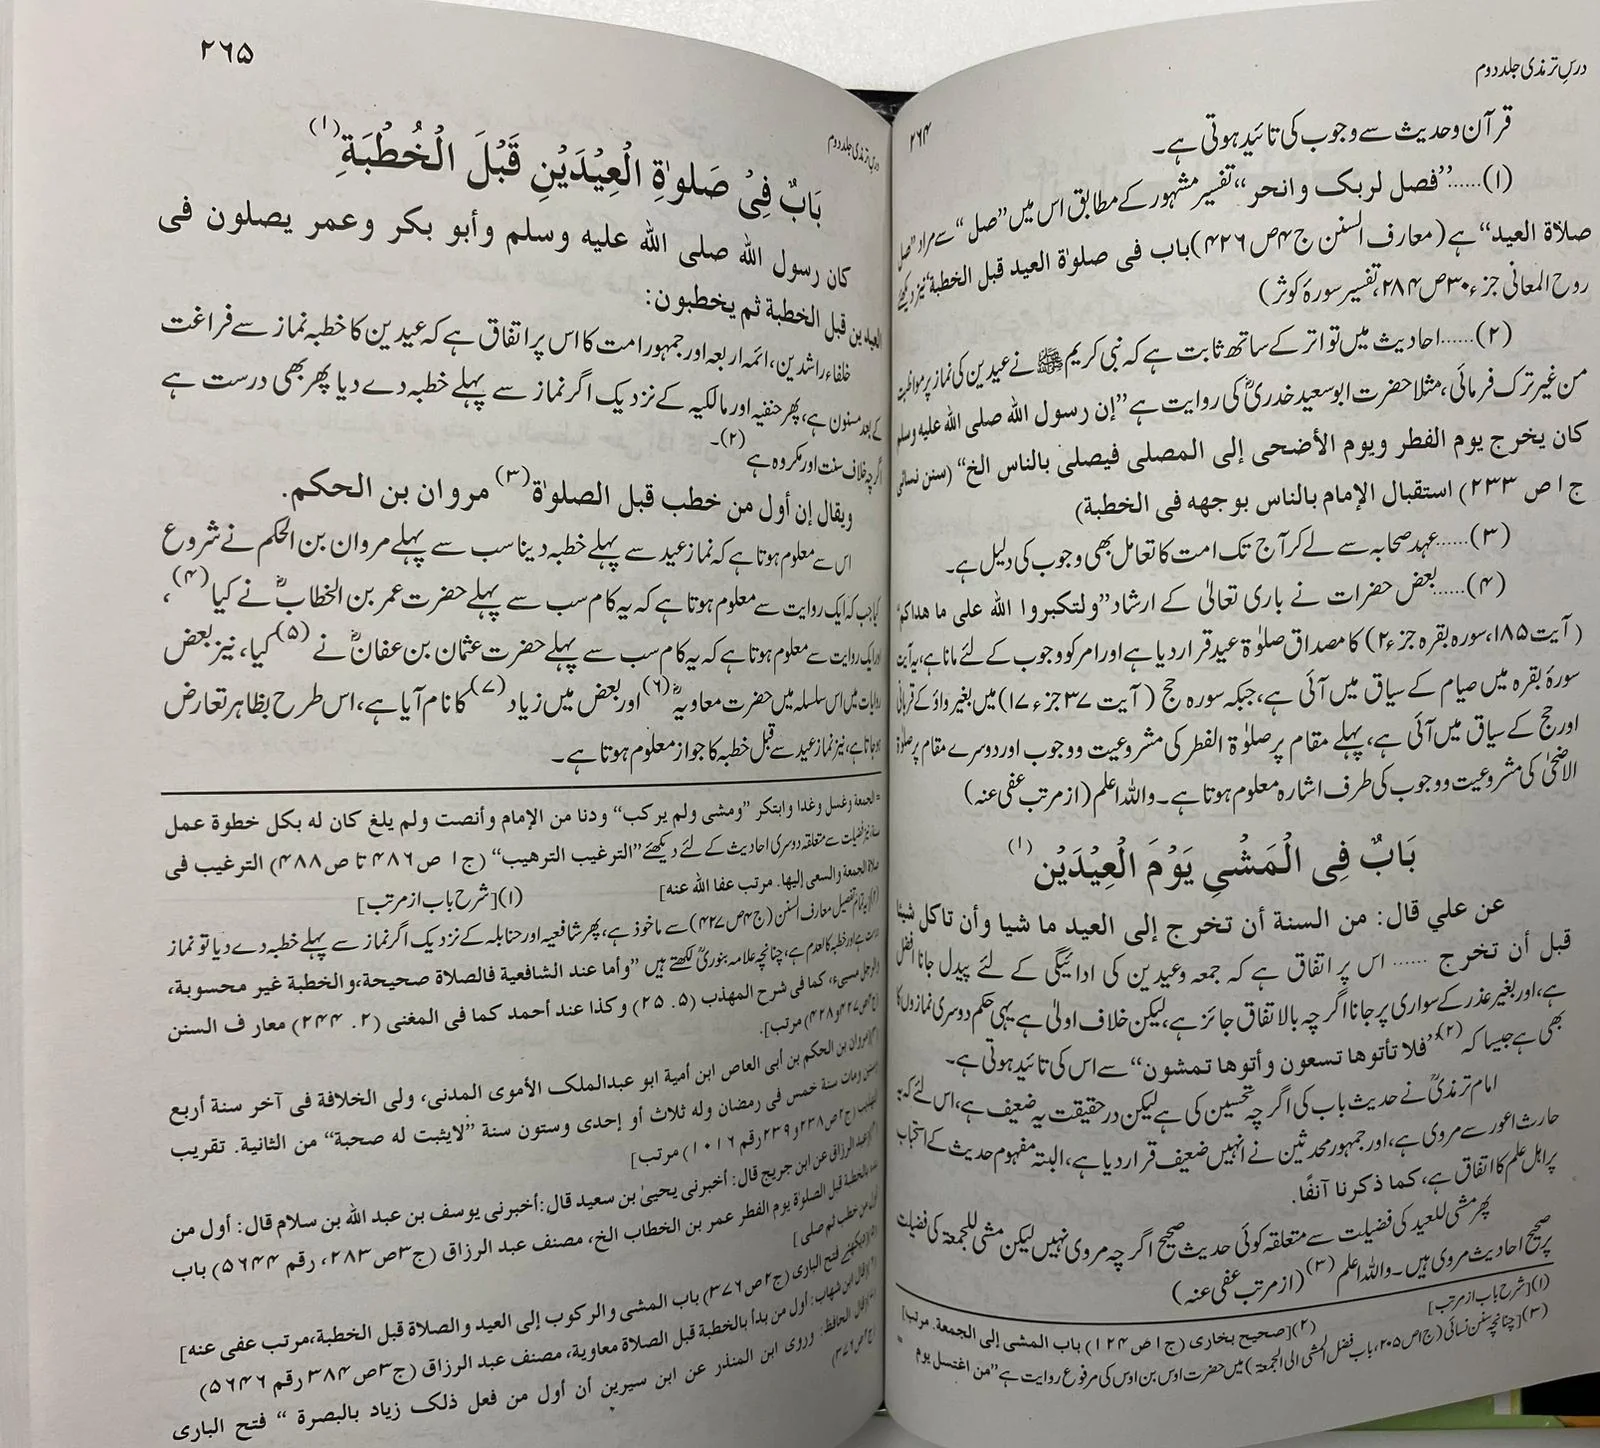 درسِ ترمذی جلد دوم
۲۶۴
قرآن وحدیث سے وجوب کی تائید ہوتی ہے۔
(۱)......”فصل لربک وانحر“ تفسیر مشہور کے مطابق اس میں ”صل“ سے مراد ”صل
صلاة العيد“ ہے (معارف السنن ج۴ص۴۲۶) باب فی صلوٰة العید قبل الخطبة نیز دیکھئے
روح المعانی جزء۳۰ص۲۸۴، تفسیر سورۂ کوثر)
(۲)......احادیث میں تواتر کے ساتھ ثابت ہے کہ نبی کریم ﷺ نے عیدین کی نماز پر مواظبت
من غیر ترک فرمائی، مثلا حضرت ابو سعید خدریؓ کی روایت ہے ”إن رسول الله صلى الله عليه وسلم
كان يخرج يوم الفطر ويوم الأضحى إلى المصلى فيصلى بالناس الخ“ (سنن نسائی
ج۱ص۲۳۳) استقبال الإمام بالناس بوجهه فی الخطبة)
(۳)......عہدِ صحابہ سے لے کر آج تک امت کا تعامل بھی وجوب کی دلیل ہے۔
(۴)......بعض حضرات نے باری تعالیٰ کے ارشاد ”ولتكبروا الله على ما هداكم“
(آیت۱۸۵، سورہ بقرہ جزء۲) کا مصداق صلوٰۃ عید قرار دیا ہے اور امر کو وجوب کے لئے مانا ہے، یہ آیت
سورۂ بقرہ میں صیام کے سیاق میں آئی ہے، جبکہ سورہ حج (آیت۳۷ جزء۱۷) میں بغیر واؤ کے قربانی
اور حج کے سیاق میں آئی ہے، پہلے مقام پر صلوٰۃ الفطر کی مشروعیت ووجوب اور دوسرے مقام پر صلوٰۃ
الاضحٰی کی مشروعیت ووجوب کی طرف اشارہ معلوم ہوتا ہے۔ واللہ اعلم (از مرتب عفی عنہ)
بَابٌ فِی الْمَشْیِ یَوْمَ الْعِیْدَیْنِ (۱)
عن علي قال: من السنة أن تخرج إلى العيد ما شيا وأن تاكل شيئا
قبل أن تخرج ...... اس پر اتفاق ہے کہ جمعہ وعیدین کی ادائیگی کے لئے پیدل جانا افضل
ہے، اور بغیر عذر کے سواری پر جانا اگر چہ بالاتفاق جائز ہے، لیکن خلاف اولیٰ ہے یہی حکم دوسری نمازوں کا
بھی ہے جیسا کہ (۲) ”فلا تأتوها تسعون وأتوها تمشون“ سے اس کی تائید ہوتی ہے۔
امام ترمذیؒ نے حدیث باب کی اگر چہ تحسین کی ہے لیکن درحقیقت یہ ضعیف ہے، اس لئے کہ یہ
حارث اعور سے مروی ہے، اور جمہور محدثین نے انہیں ضعیف قرار دیا ہے، البتہ مفہوم حدیث کے استحباب
پر اہل علم کا اتفاق ہے، كما ذكرنا آنفًا.
پھر مشی للعید کی فضیلت سے متعلقہ کوئی حدیث صحیح اگر چہ مروی نہیں لیکن مشی للجمعۃ کی فضیلت
پر صحیح احادیث مروی ہیں۔ واللہ اعلم (۳) (از مرتب عفی عنہ)
(۱) [شرح باب از مرتب]
(۲) [صحیح بخاری (ج۱ص۱۲۴) باب المشی إلی الجمعة. مرتب]
(۳) [چنانچہ سنن نسائی (ج۱ص۲۰۵، باب فضل المشی الی الجمعۃ) میں حضرت اوس بن اوس کی مرفوع روایت ہے ”من اغتسل یوم =
درسِ ترمذی جلد دوم
۲۶۵
بَابٌ فِیْ صَلوٰةِ الْعِیْدَیْنِ قَبْلَ الْخُطْبَةِ (۱)
كان رسول الله صلى الله عليه وسلم وأبو بكر وعمر يصلون فى
العيدين قبل الخطبة ثم يخطبون:
خلفاء راشدین، ائمہ اربعہ اور جمہور امت کا اس پر اتفاق ہے کہ عیدین کا خطبہ نماز سے فراغت
کے بعد مسنون ہے، پھر حنفیہ اور مالکیہ کے نزدیک اگر نماز سے پہلے خطبہ دے دیا پھر بھی درست ہے
اگر چہ خلاف سنت اور مکروہ ہے (۲)۔
ويقال إن أول من خطب قبل الصلوٰة (۳) مروان بن الحكم.
اس سے معلوم ہوتا ہے کہ نماز عید سے پہلے خطبہ دینا سب سے پہلے مروان بن الحکم نے شروع
کیا جب کہ ایک روایت سے معلوم ہوتا ہے کہ یہ کام سب سے پہلے حضرت عمر بن الخطابؓ نے کیا (۴)،
اور ایک روایت سے معلوم ہوتا ہے کہ یہ کام سب سے پہلے حضرت عثمان بن عفانؓ نے (۵) کیا، نیز بعض
روایات میں اس سلسلہ میں حضرت معاویہؓ (۶) اور بعض میں زیاد (۷) کا نام آیا ہے، اس طرح بظاہر تعارض
ہو جاتا ہے، نیز نماز عید سے قبل خطبہ کا جواز معلوم ہوتا ہے۔
= الجمعة وغسل وغدا وابتكر ”ومشى ولم يركب“ ودنا من الإمام وأنصت ولم يلغ كان له بكل خطوة عمل
سنة، نیز فضیلت سے متعلقہ دوسری احادیث کے لئے دیکھئے ”الترغیب الترهیب“ (ج۱ ص۴۸۶ تا ص۴۸۸) الترغیب فی
صلاة الجمعة والسعی إلیها. مرتب عفا الله عنه]
(۱) [شرح باب از مرتب]
(۲) [یہ تمام تفصیل معارف السنن (ج۴ص۴۲۷) سے ماخوذ ہے، پھر شافعیہ اور حنابلہ کے نزدیک اگر نماز سے پہلے خطبہ دے دیا تو نماز
درست ہے اور خطبہ کالعدم ہے، چنانچہ علامہ بنوریؒ لکھتے ہیں ”وأما عند الشافعیة فالصلاة صحیحة، والخطبة غیر محسوبة،
والرجل مسیء، کما فی شرح المهذب (۵۔۲۵) وكذا عند أحمد كما فی المغنی (۲۔۲۴۴) معارف السنن
(ج۴ص۴۲۷و۴۲۸) مرتب]۔
(۳) [مروان بن الحکم بن أبی العاص ابن أمیة ابو عبدالملک الأموی المدنی، ولی الخلافة فی آخر سنة أربع
وستین ومات سنة خمس فی رمضان وله ثلاث أو إحدى وستون سنة ”لایثبت له صحبة“ من الثانیة. تقریب
التهذیب (ج۲ص۲۳۸و۲۳۹ رقم ۱۰۱۶) مرتب]
(۴) [عبد الرزاق عن ابن جریج قال: أخبرنی یحییٰ بن سعید قال: أخبرنی یوسف بن عبد الله بن سلام قال: أول من
بدأ بالخطبة قبل الصلوٰة یوم الفطر عمر بن الخطاب الخ، مصنف عبد الرزاق (ج۳ص۲۸۳، رقم ۵۶۴۴) باب
أول من خطب ثم صلی]
(۵) [دیکھئے فتح الباری (ج۲ص۳۷۶) باب المشی والرکوب إلی العید والصلاة قبل الخطبة، مرتب عفی عنه]
(۶) [قال ابن شهاب: أول من بدأ بالخطبة قبل الصلاة معاویة، مصنف عبد الرزاق (ج۳ص۳۸۴ رقم ۵۶۴۶)
(۷) [قال الحافظ: وروی ابن المنذر عن ابن سیرین أن أول من فعل ذلک زیاد بالبصرة“ فتح الباری
(ج۲ص۳۷۶)